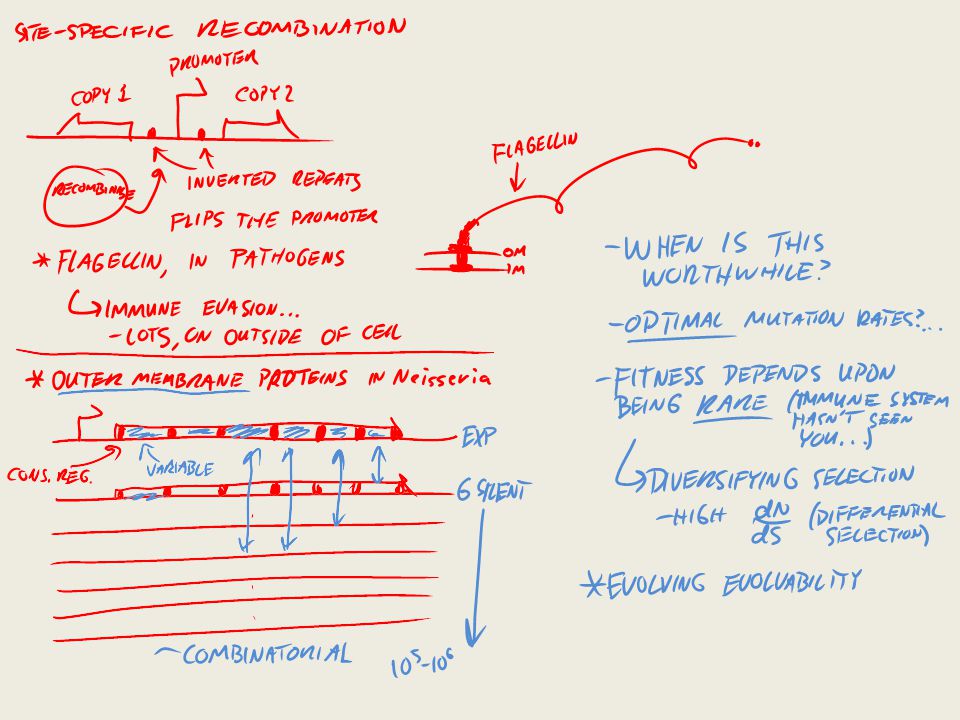 SITE-SPECIFIC RECOMBINATION
PROMOTER
COPY 1
COPY 2
RECOMBINASE
INVERTED REPEATS
FLIPS THE PROMOTER
* FLAGELLIN, IN PATHOGENS
IMMUNE EVASION...
- LOTS, ON OUTSIDE OF CELL
FLAGELLIN
OM
IM
* OUTER MEMBRANE PROTEINS IN Neisseria
EXP
CONS. REG.
VARIABLE
6 SILENT
~COMBINATORIAL
10⁵-10⁶
- WHEN IS THIS
WORTHWHILE?
- OPTIMAL MUTATION RATES?...
- FITNESS DEPENDS UPON
BEING RARE (IMMUNE SYSTEM
HASN'T SEEN
YOU...)
DIVERSIFYING SELECTION
- HIGH dN/dS (DIFFERENTIAL
SELECTION)
* EVOLVING EVOLVABILITY